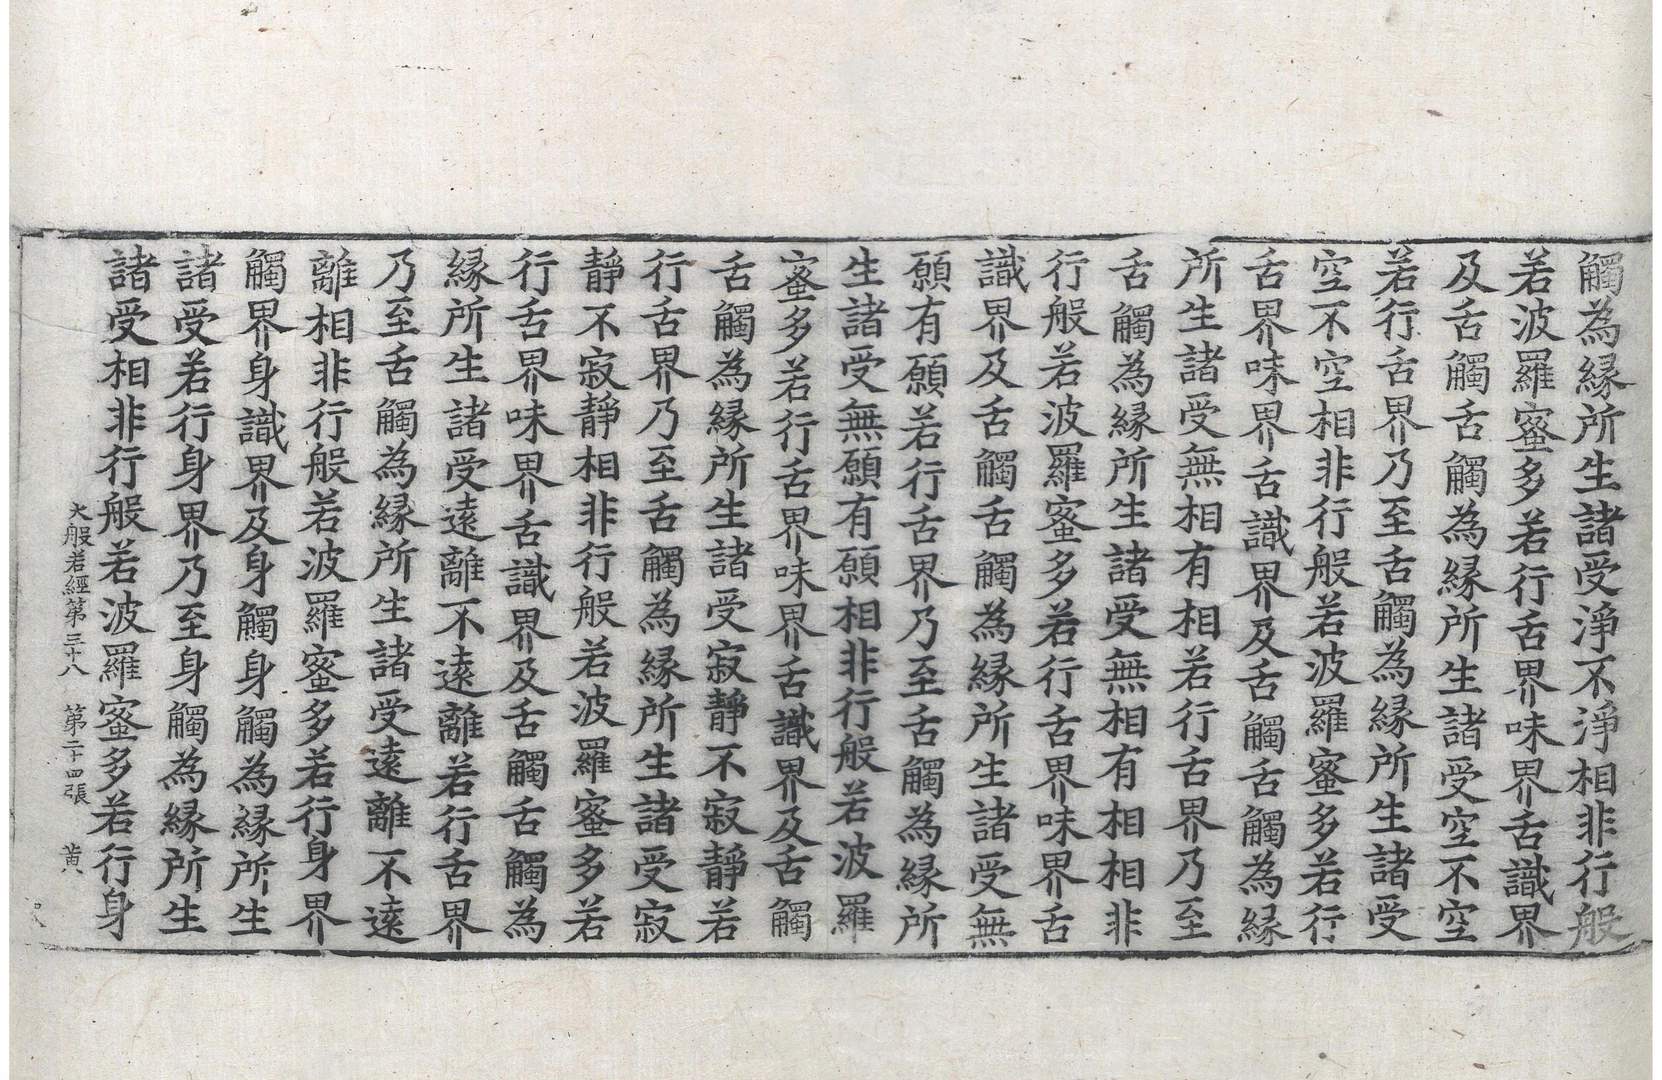 觸為縁所生諸受淨不淨相非行般
若波羅蜜多若行舌界味界舌識界
及舌觸舌觸為縁所生諸受空不空
若行舌界乃至舌觸為縁所生諸受
空不空相非行般若波羅蜜多若行
舌界味界舌識界及舌觸舌觸為縁
所生諸受無相有相若行舌界乃至
舌觸為縁所生諸受無相有相相非
行般若波羅蜜多若行舌界味界舌
識界及舌觸舌觸為縁所生諸受無
願有願若行舌界乃至舌觸為縁所
生諸受無願有願相非行般若波羅
蜜多若行舌界味界舌識界及舌觸
舌觸為縁所生諸受寂靜不寂靜若
行舌界乃至舌觸為縁所生諸受寂
靜不寂靜相非行般若波羅蜜多若
行舌界味界舌識界及舌觸舌觸為
縁所生諸受遠離不遠離若行舌界
乃至舌觸為縁所生諸受遠離不遠
離相非行般若波羅蜜多若行身界
觸界身識界及身觸身觸為縁所生
諸受若行身界乃至身觸為縁所生
諸受相非行般若波羅蜜多若行身
大般若經第三十八 第二十四張 黄